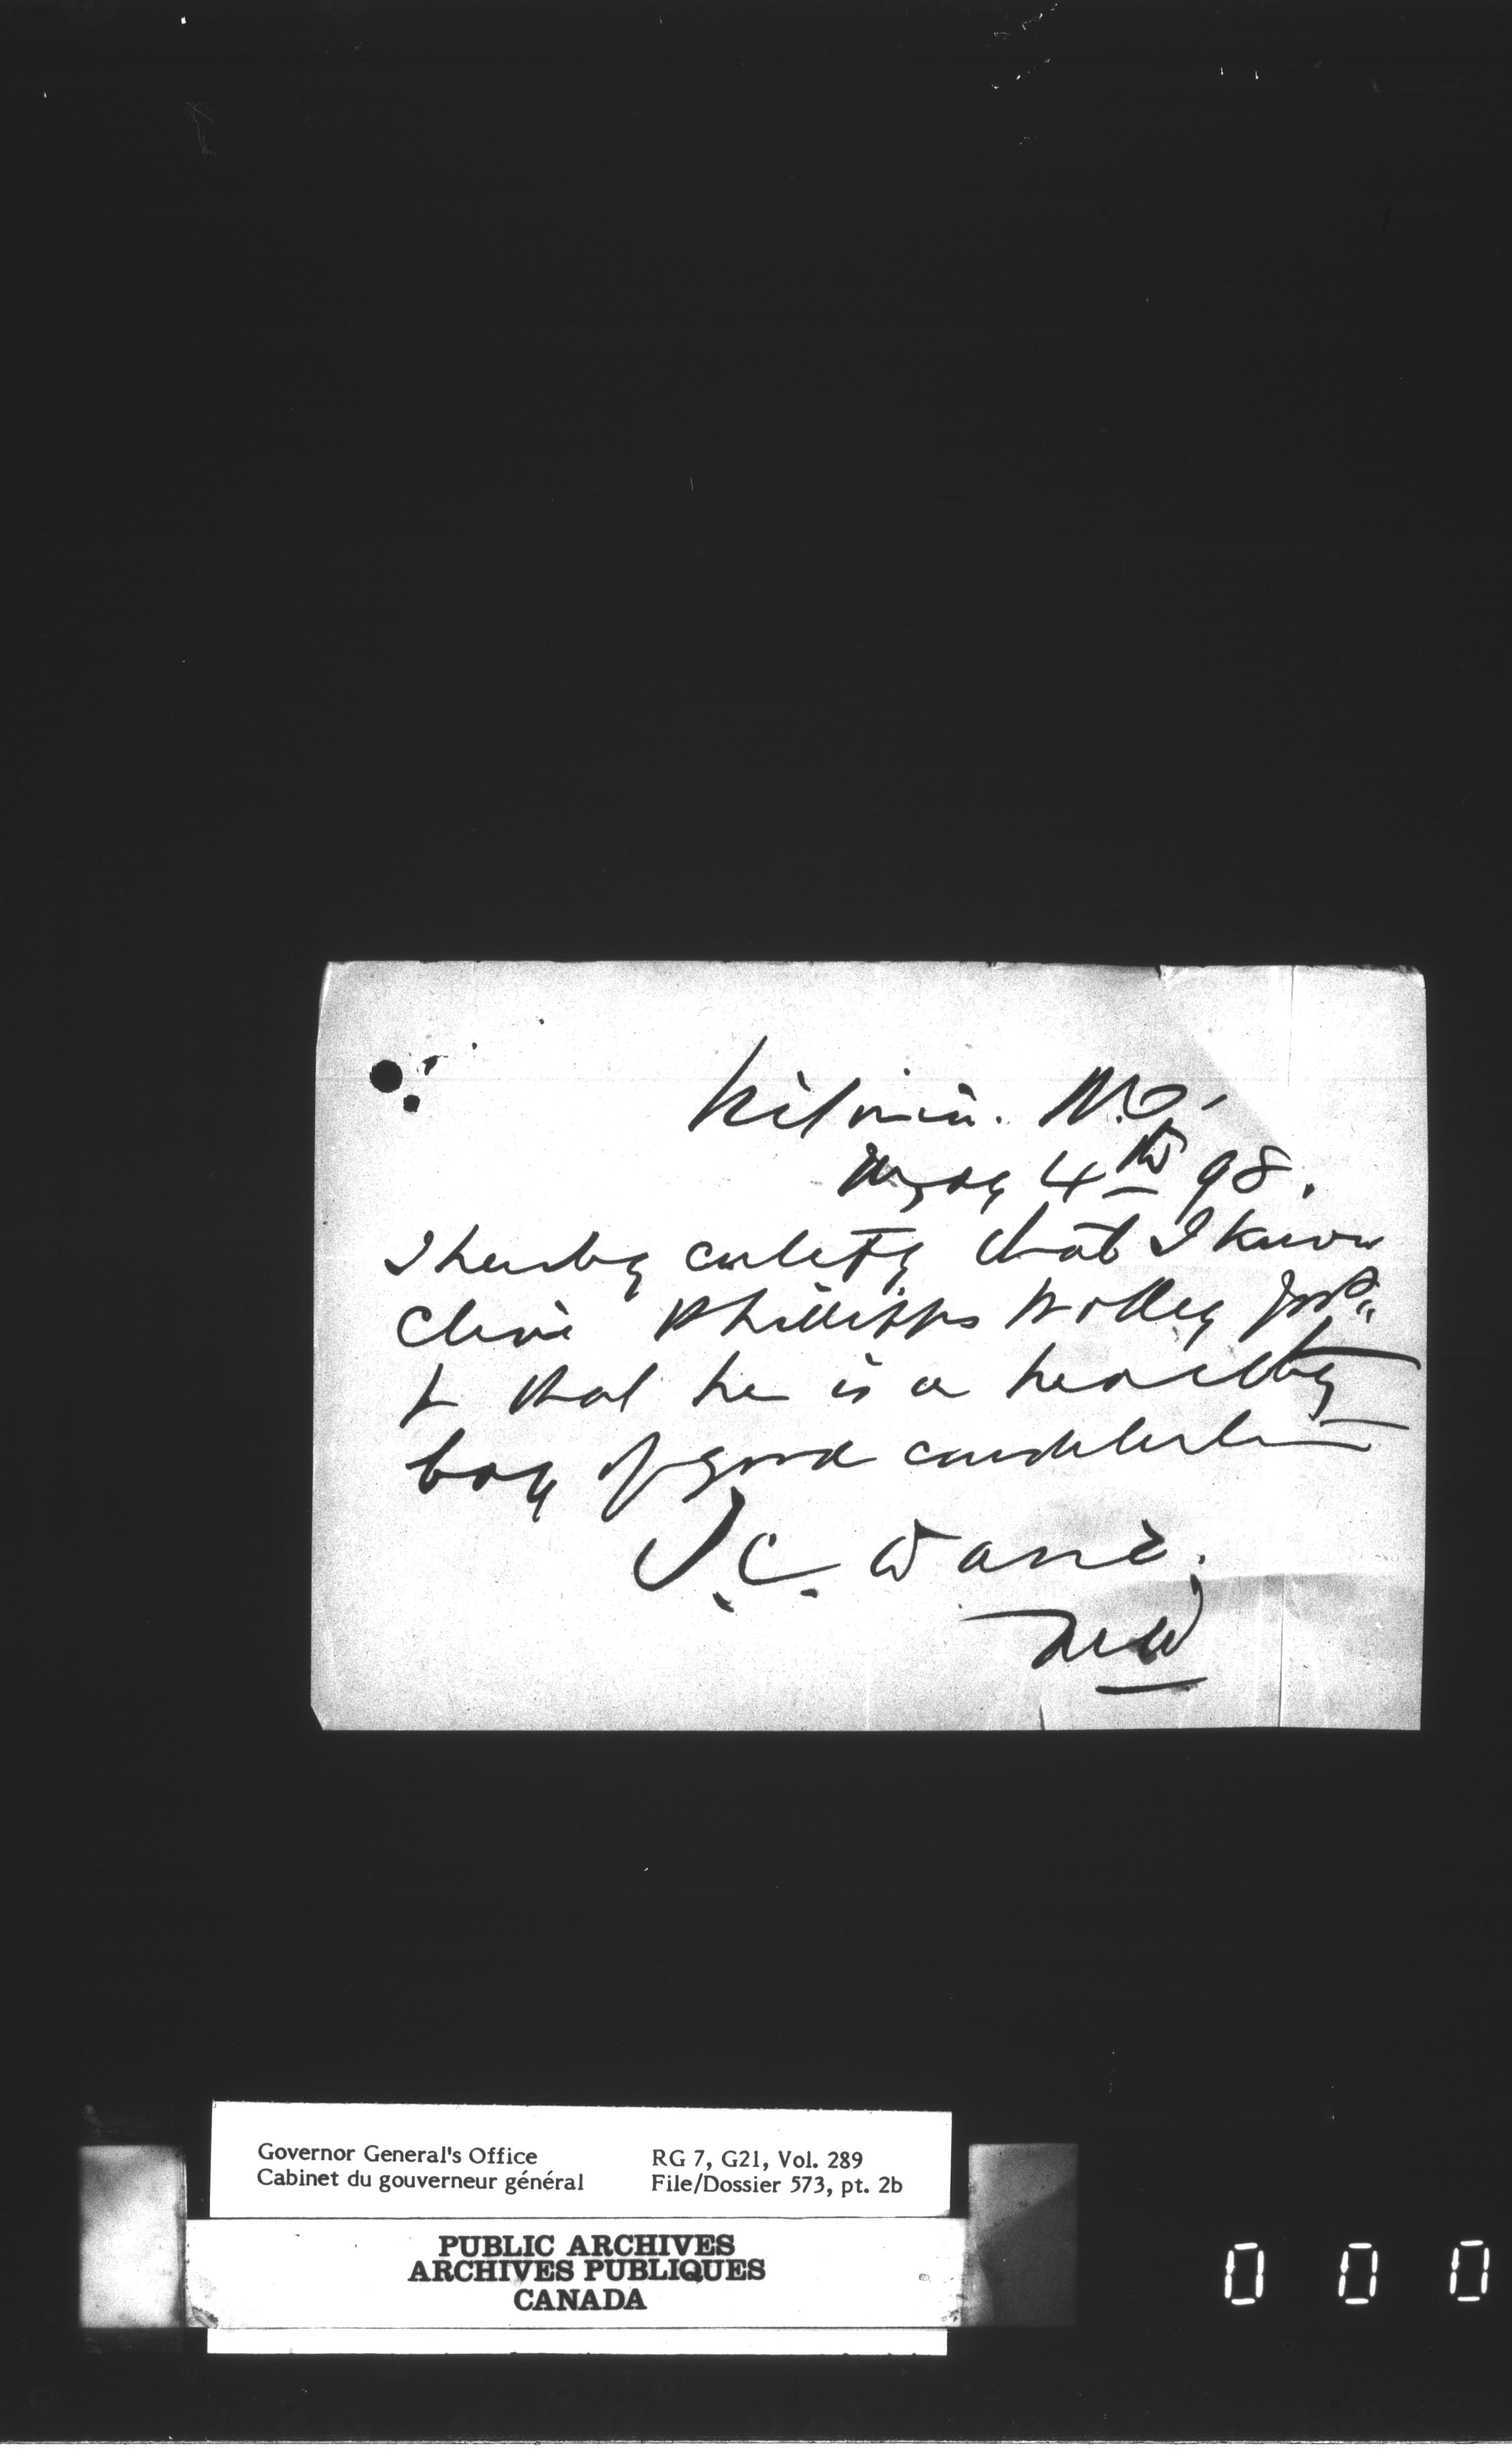 May 4th 98.
I hereby certify that I know
Clive Phillipps Wolley Junr
& that he is a healthy
boy of good constitution
J.C. Davie.
MD
Governor General's Office RG 7, G21, Vol. 289
Cabinet du gouverneur général File/Dossier 573, pt. 2b
PUBLIC ARCHIVES
ARCHIVES PUBLIQUES
CANADA
0 0 0